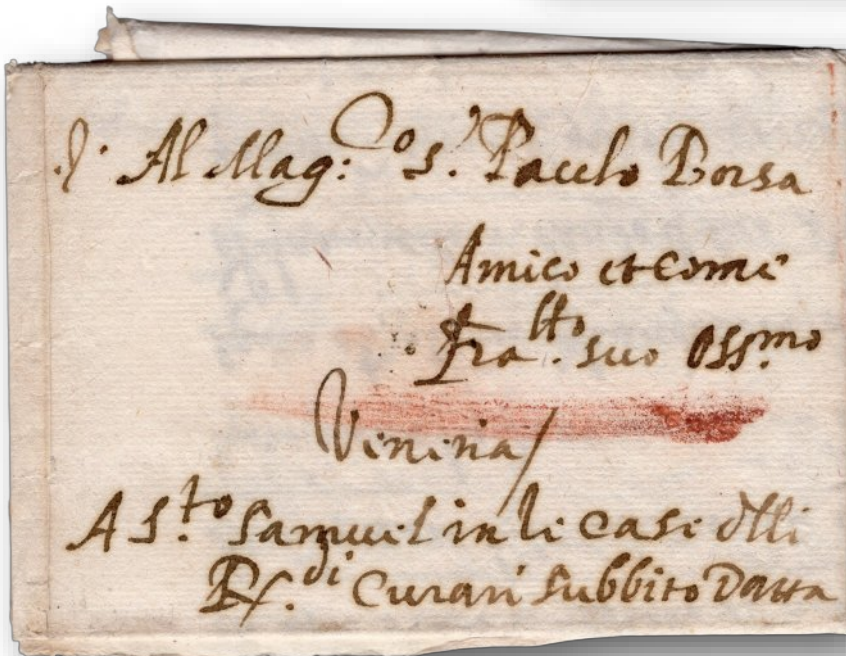 Al Mag:co S.r Paulo Borsa
Amico et come
fra.llo suo oss.mo
Venetia
A S.to Samuel in le case dlli
R.di Curati subbito Data